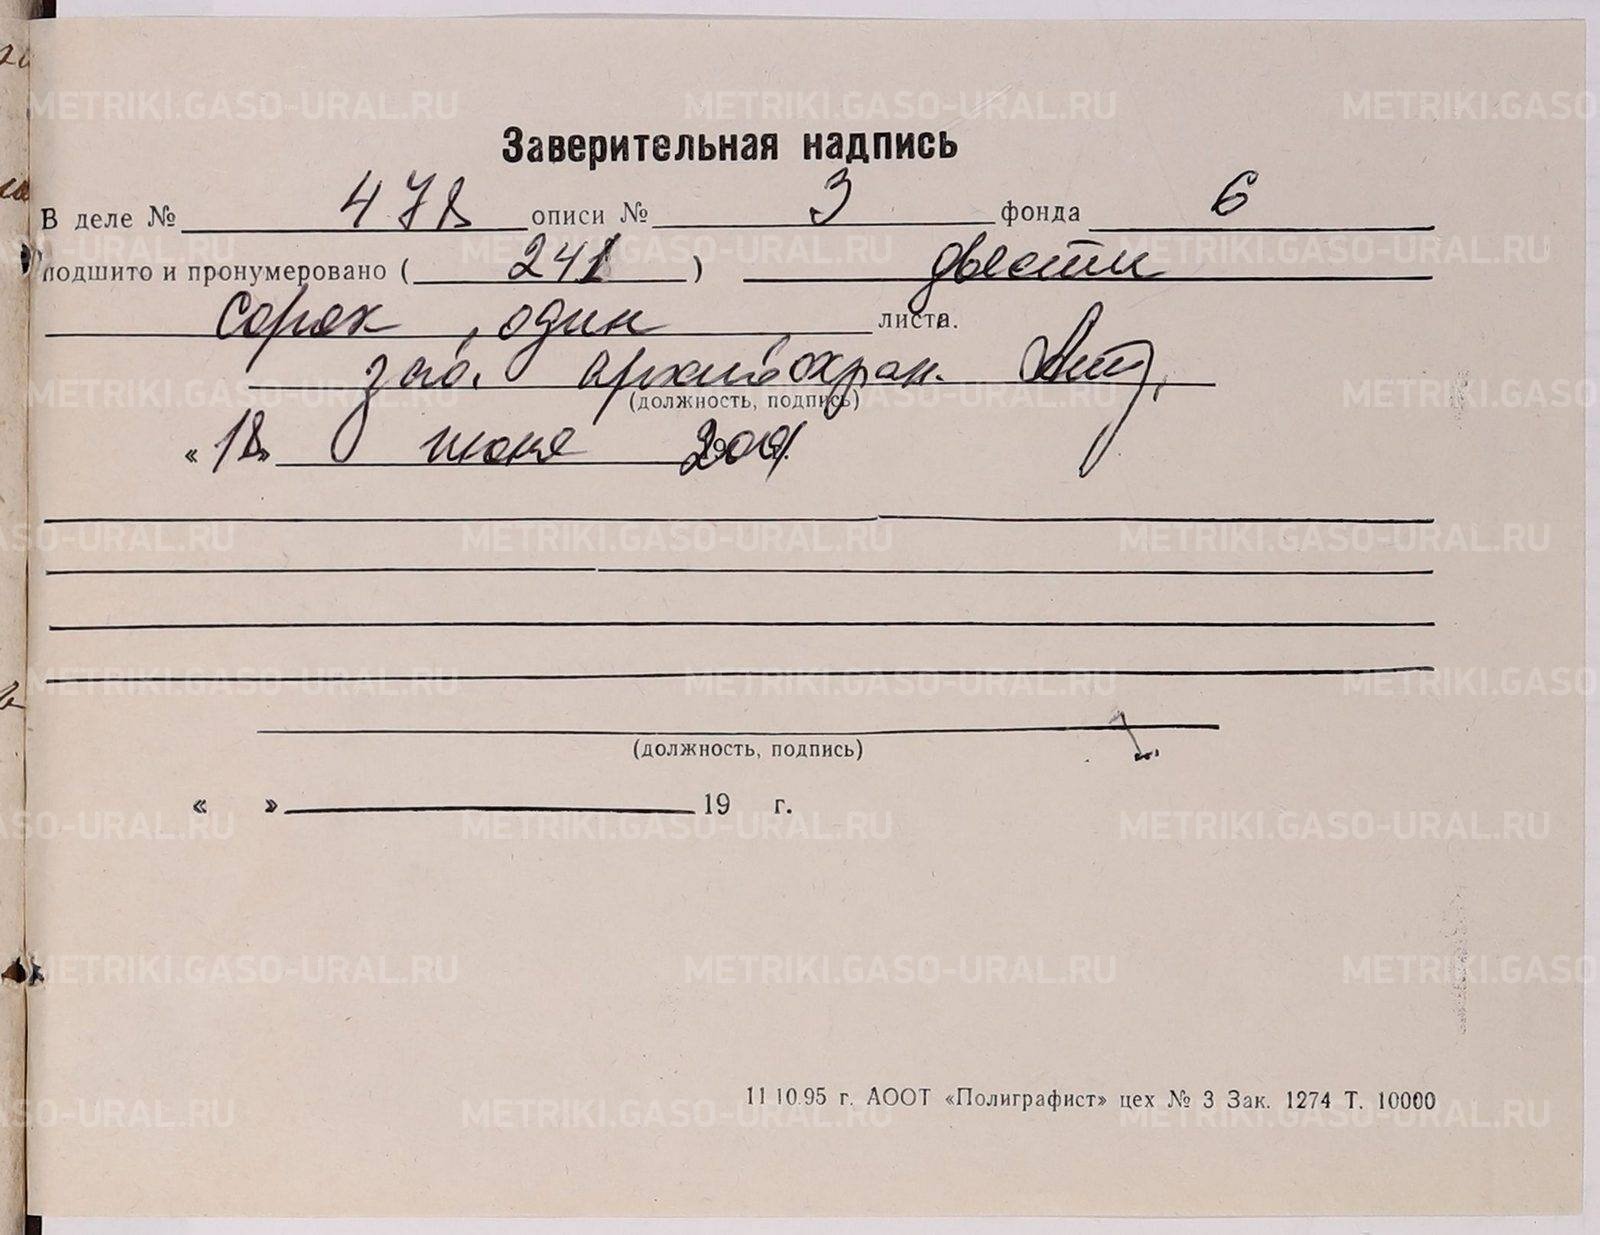 Заверительная надпись
В деле № 478 описи № 3 фонда 6
подшито и пронумеровано ( 241 ) двести
сорок один листа.
зав. архивохран.
(должность, подпись)
« 18 » июня 2001.
(должность, подпись)
« » 19 г.
11 10.95 г. АООТ «Полиграфист» цех № 3 Зак. 1274 Т. 10000
METRIKI.GASO-URAL.RU